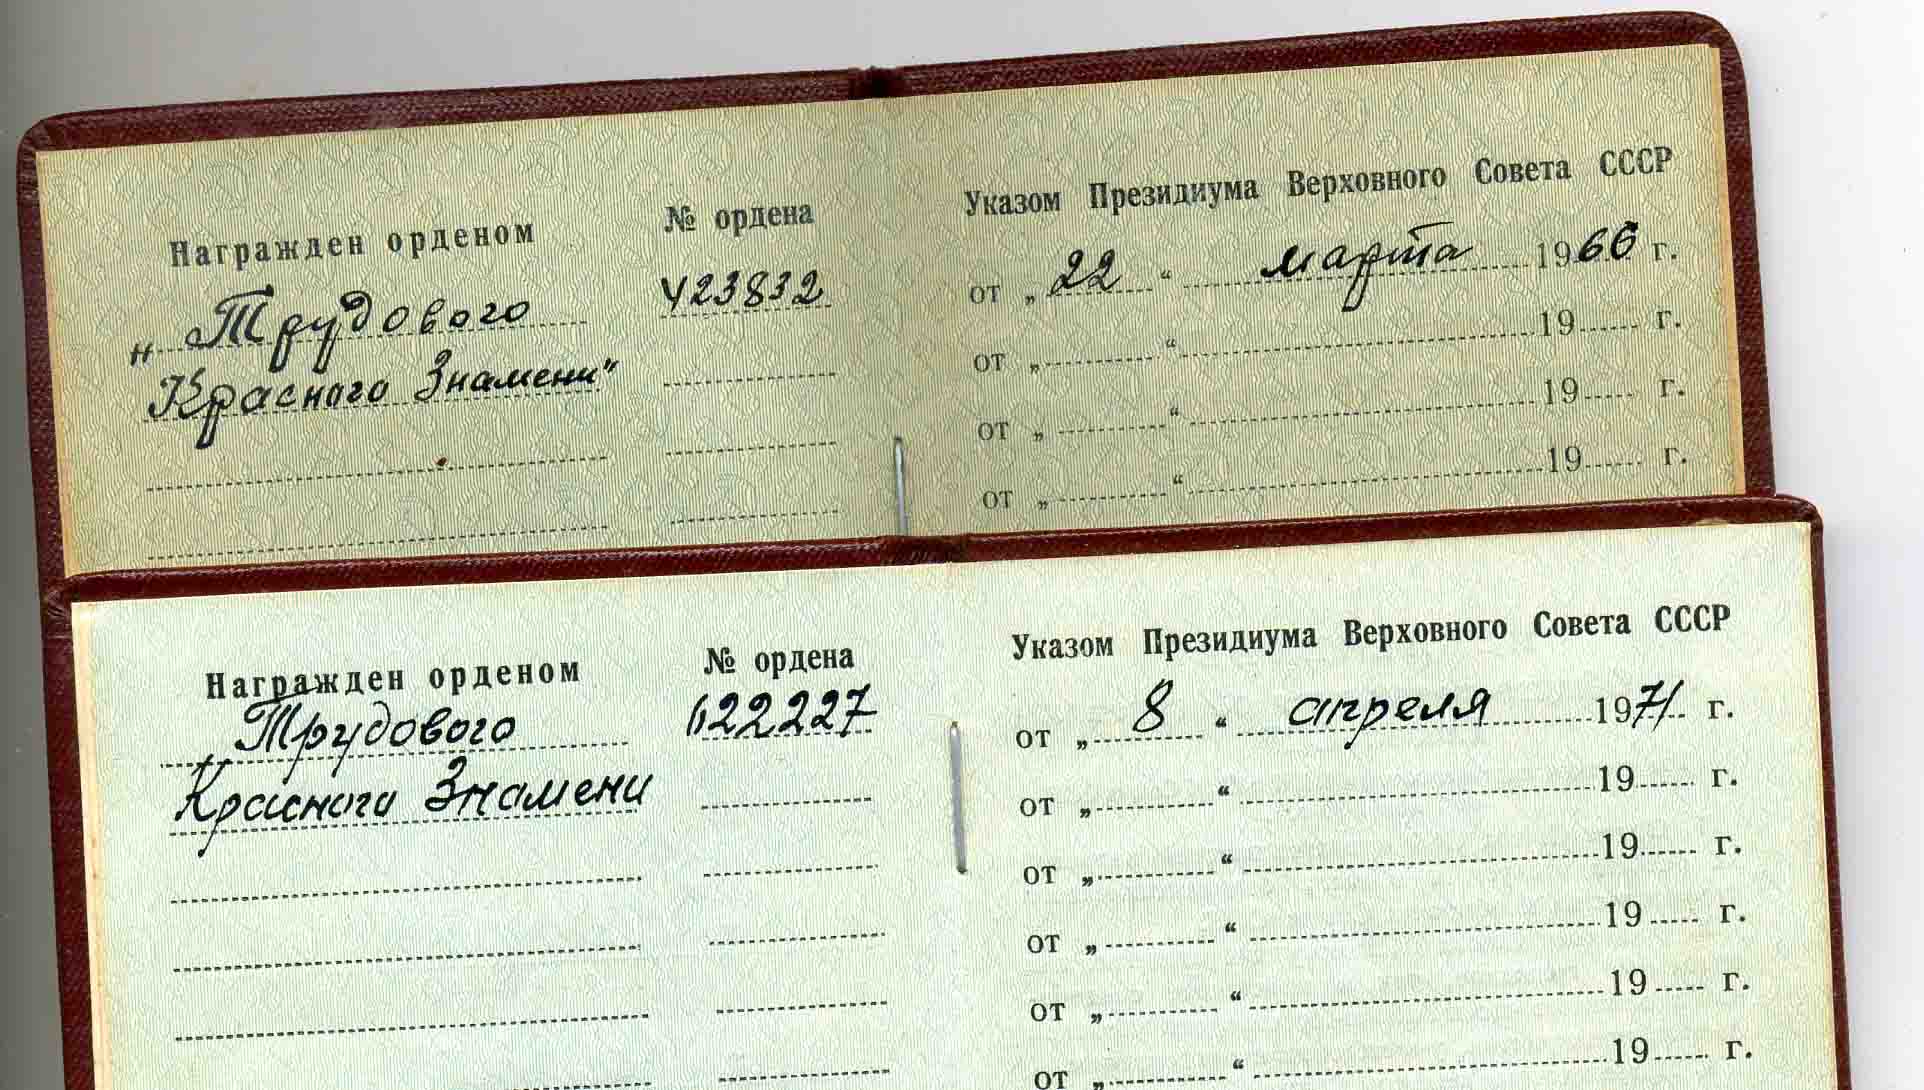 Награжден орденом № ордена Указом Президиума Верховного Совета СССР
„Трудового 423832 от „22“ марта 1966 г.
Красного Знамени" от „ “ 19 г.
от „ “ 19 г.
от „ “ 19 г.
Награжден орденом № ордена Указом Президиума Верховного Совета СССР
Трудового 622227 от „8“ апреля 1971 г.
Красного Знамени от „ “ 19 г.
от „ “ 19 г.
от „ “ 19 г.
от „ “ 19 г.
от „ “ 19 г.